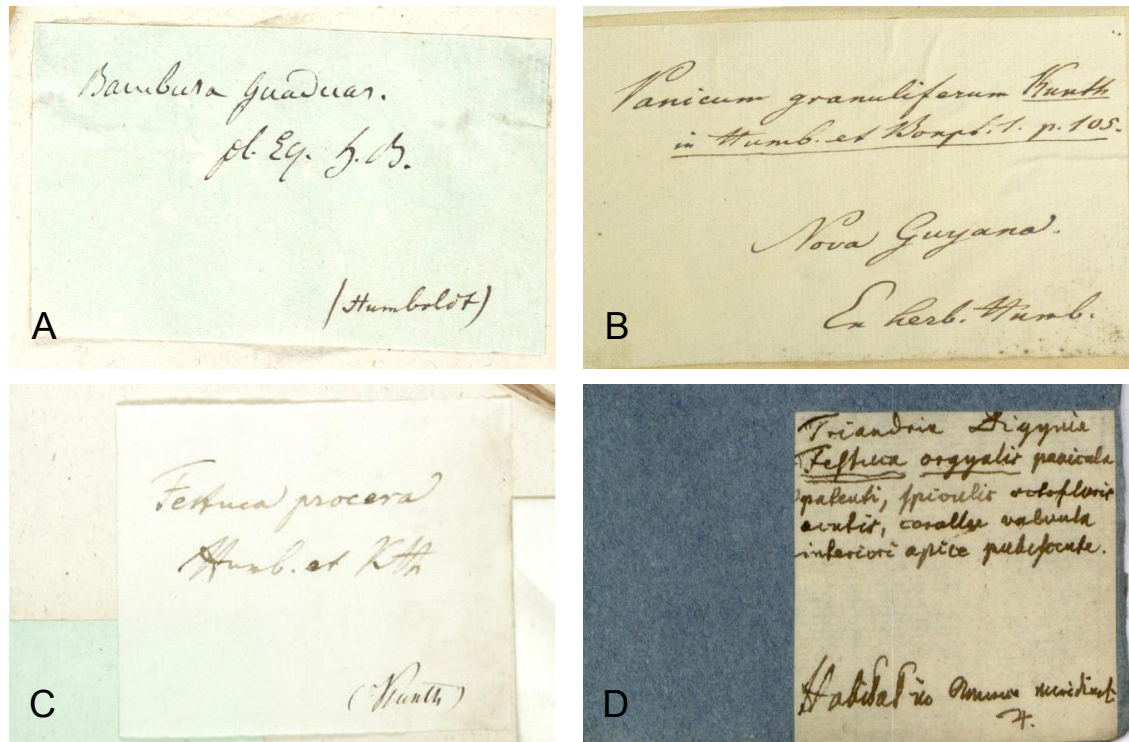 Bambusa Guaduas.
pl. Eq. H. B.
(Humboldt)
A
Panicum granuliferum Kunth
in Humb. et Bonpl. 1. p. 105.
Nova Guyana.
Ex herb. Humb.
B
Festuca procera
Humb. et Kth
(Kunth)
C
Triandria Digynia
Festuca orgyalis panicula
patenti, spiculis octofloris
acutis, corollae valvula
inferiori apice pubescente.
Habitat in America meridional.
♃.
D